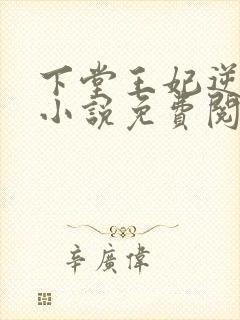 下堂王妃逆
小說免費閱
辛廣偉